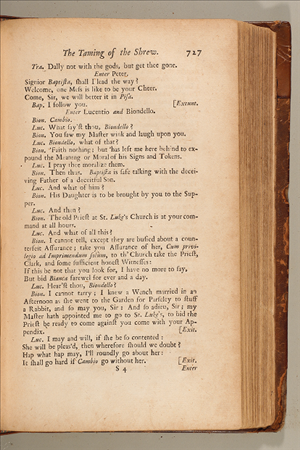 The Taming of the Shrew. 727
Tra. Dally not with the gods, but get thee gone.
Enter Peter.
Signior Baptista, shall I lead the way?
Welcome, one Mess is like to be your Cheer.
Come, Sir, we will better it in Pisa.
Bap. I follow you. [Exeunt.
Enter Lucentio and Biondello.
Bion. Cambio.
Luc. What say'st thou, Biondello?
Bion. You saw my Master wink and laugh upon you.
Luc. Biondello, what of that?
Bion. 'Faith nothing; but 'has left me here behind to ex-
pound the Meaning or Moral of his Signs and Tokens.
Luc. I pray thee moralize them.
Bion. Then thus. Baptista is safe talking with the decei-
ving Father of a deceitful Son.
Luc. And what of him?
Bion. His Daughter is to be brought by you to the Sup-
per.
Luc. And then?
Bion. The old Priest at St. Luke's Church is at your com-
mand at all hours.
Luc. And what of all this?
Bion. I cannot tell, except they are busied about a coun-
terfeit Assurance; take you Assurance of her, Cum privi-
legio ad Imprimendum solum, to th' Church take the Priest,
Clark, and some sufficient honest Witnesses:
If this be not that you look for, I have no more to say,
But bid Bianca farewel for ever and a day.
Luc. Hear'st thou, Biondello?
Bion. I cannot tarry; I knew a Wench married in an
Afternoon as she went to the Garden for Parsley to stuff
a Rabbit, and so may you, Sir: And so adieu, Sir; my
Master hath appointed me to go to St. Luke's, to bid the
Priest be ready to come against you come with your Ap-
pendix. [Exit.
Luc. I may and will, if she be so contented:
She will be pleas'd, then wherefore should we doubt?
Hap what hap may, I'll roundly go about her:
It shall go hard if Cambio go without her. [Exit.
S 4 Enter